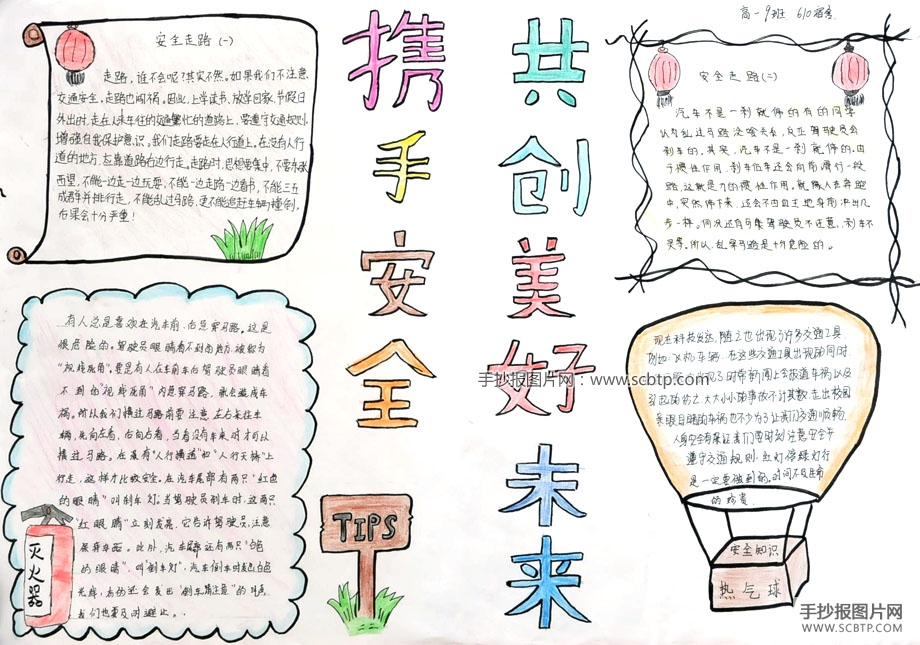 高一9班 610宿舍
携手安全
共创美好未来
安全走路(一)
走路,谁不会呢?其实不然。如果我们不注意
交通安全,走路也闯祸。因此,上学读书,放学回家,节假日
外出时,走在人来车往的交通繁忙的道路上,要遵守交通规则,
增强自我保护意识。我们走路要走在人行道上,在没有人行
道的地方,应靠道路右边行走。走路时,思想要集中,不要东张
西望,不能一边走一边玩耍,不能一边走路一边看书,不能三五
成群并排行走,不能乱过马路,更不能追赶车辆
后果会十分严重!
安全走路(二)
汽车不是一刹就停的有的同学
认为乱过马路没啥关系,反正驾驶员会
刹车的,其实,汽车不是一刹就停的。由
于惯性作用,刹车后车还会向前滑行一段
路,这就是力的惯性作用。就像人在奔跑
中,突然停下来,还会不由自主地身前冲出几
步一样。何况还有可集驾驶员不注意,刹车不
灵等。所以,乱穿马路是十分危险的。
有人总是喜欢在汽车前、后急穿马路。这是
很危险的。驾驶员眼睛看不到的地方,被称为
"视线死角"。要是有人在车前车后驾驶员眼睛看
不到的"视线死角"内急穿马路,就会造成车
祸。所以我们横过马路前要注意,左右来往车
辆,先向左看,后向右看,当看没有车来时才可以
横过马路。在设有"人行横道"和"人行天桥"上
行走,这样才比较安全。在汽车尾部有两只"红色
的眼睛"叫刹车灯。当驾驶员刹车时,这两只
"红眼睛"立刻发亮,它告诉驾驶员,注意
保持车距。此外,汽车尾部还有两只"白色
的眼睛",叫"倒车灯",汽车倒车时发出白色
光辉,有的还会发出"倒车请注意"的叫声
我们也要及时避让。
灭火器
TIPS
现在科技发达,随之也出现了许多交通工具,
例如:飞机、车辆。在这些交通工具出现的同时,
引起的伤亡。大大小小的事故不计其数,走出校园
人身安全有保证我们要时刻注意安全
遵守交通规则,红灯停绿灯行
是一定要做到的。时间不及生命
的珍贵
安全知识
热气球
手抄报图片网:www.scbtp.com
手抄报图片网
WWW.SCBTP.COM